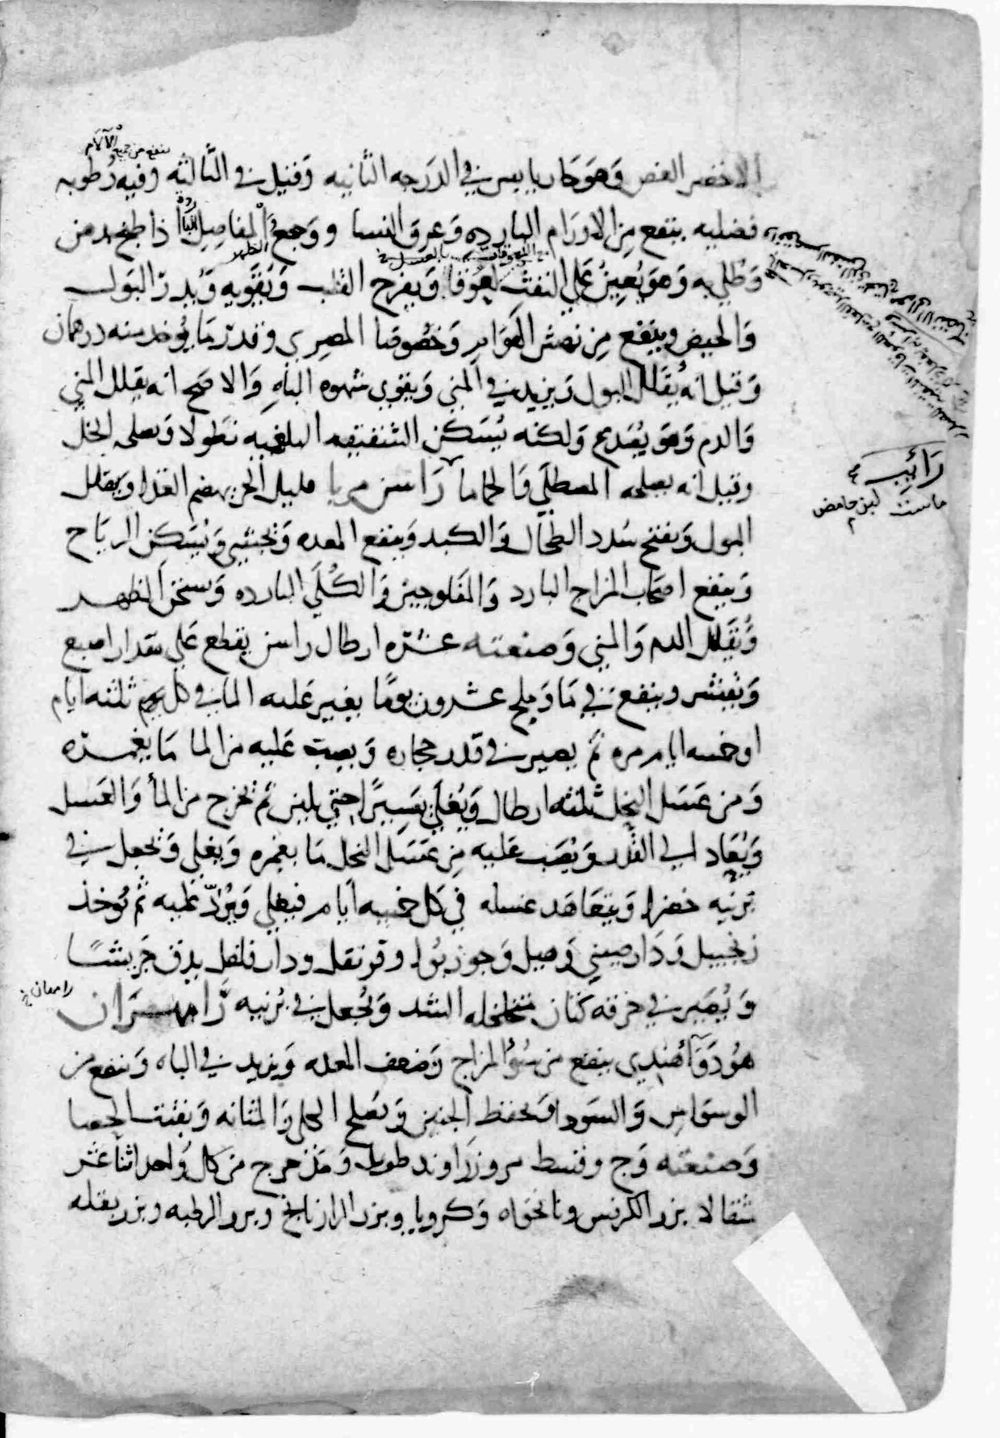 الاخضر الغض وهو حار يابس في الدرجه الثانيه وقيل في الثالثه وفيه رطوبه
ينفع من جميع الآلام
فضليه ينفع من الاورام البارده وعرق النسا ووجع المفاصل اذا طبخ بدهن
الظهر
وطلي به وهو يعين علي النفث لعوقا ويفرح القلب ويقويه ويدر البول
بالعسل
والحيض وينفع من نهش الهوام وخصوصا المصري وقدر ما يوخذ منه درهمان
وقيل انه يقلل البول ويزيد في المني ويقوي شهوه الباه والاصح انه يقلل المني
والدم وهو يصدع ولكنه يسكن الشقيقه البلغميه نطولا ويصلحه الخل
وقيل انه يصلحه المصطكي والحاما راسن مربا قليل الحر يهضم الغذا ويقلل
البول ويفتح سدد الطحال والكبد وينفع المعده ويجشي ويسكن الرياح
وينفع اصحاب المزاج البارد والمفلوجين والكلي البارده ويسخن الظهر
ويقلل الدم والمني وصنعته عشره ارطال راسن يقطع علي مقدار اصبع
ويقشر وينقع في ما وملح عشرون يوما يغير عليه الما في كل ثلثه ايام
او خمسه ايام مره ثم يصير في قدر حجاره ويصب عليه من الما ما يغمره
ومن عسل النحل ثلثه ارطال ويغلي يسيرا حتي يلين ثم يخرج من الما والعسل
ويعاد الي القدر ويصب عليه من عسل النحل ما يغمره ويغلي ويجعل في
برنيه خضرا ويتعاهد عسله في كل خمسه ايام فيغلي ويرد عليه ثم يوخذ
زنجبيل ودارصيني وهيل وجوزبوا وقرنفل ودارفلفل يدق جريشا
ويصير في خرقه كتان متخلخله الشد ويجعل في برنيه رامهران
رامهران
هو دوا هندي ينفع من سو المزاج وضعف المعده ويزيد في الباه وينفع من
الوسواس والسودا ويحفظ الجنين ويصلح الكلي والمثانه ويفتت الحصا
وصنعته وج وقسط مر وزراوند طويل ومدحرج من كل واحد اثنا عشر
مثقالا بزر الكرفس ونانخواه وكرويا وبزر الرازيانج وبزر الرطبه وبزر بقله
رائب
ماست لبن حامض